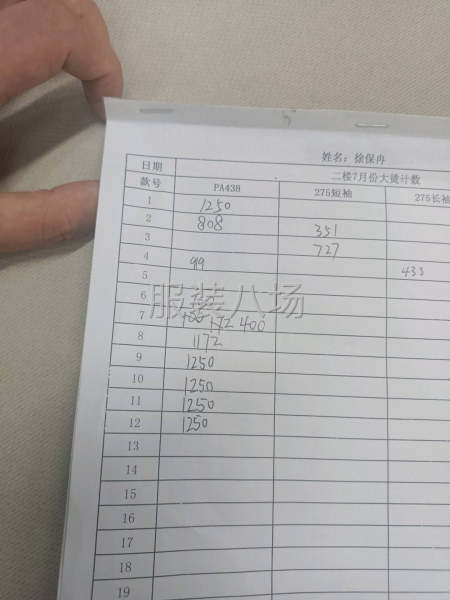 姓名：徐保冉
日期 二楼7月份大烫计数
款号 PA438 275短袖 275长袖
1 1250
2 808 351
3 727
4 99 433
5
服装八场
6
7 172 400
8 1172
9 1250
10 1250
11 1250
12 1250
13
14
15
16
17
18
19